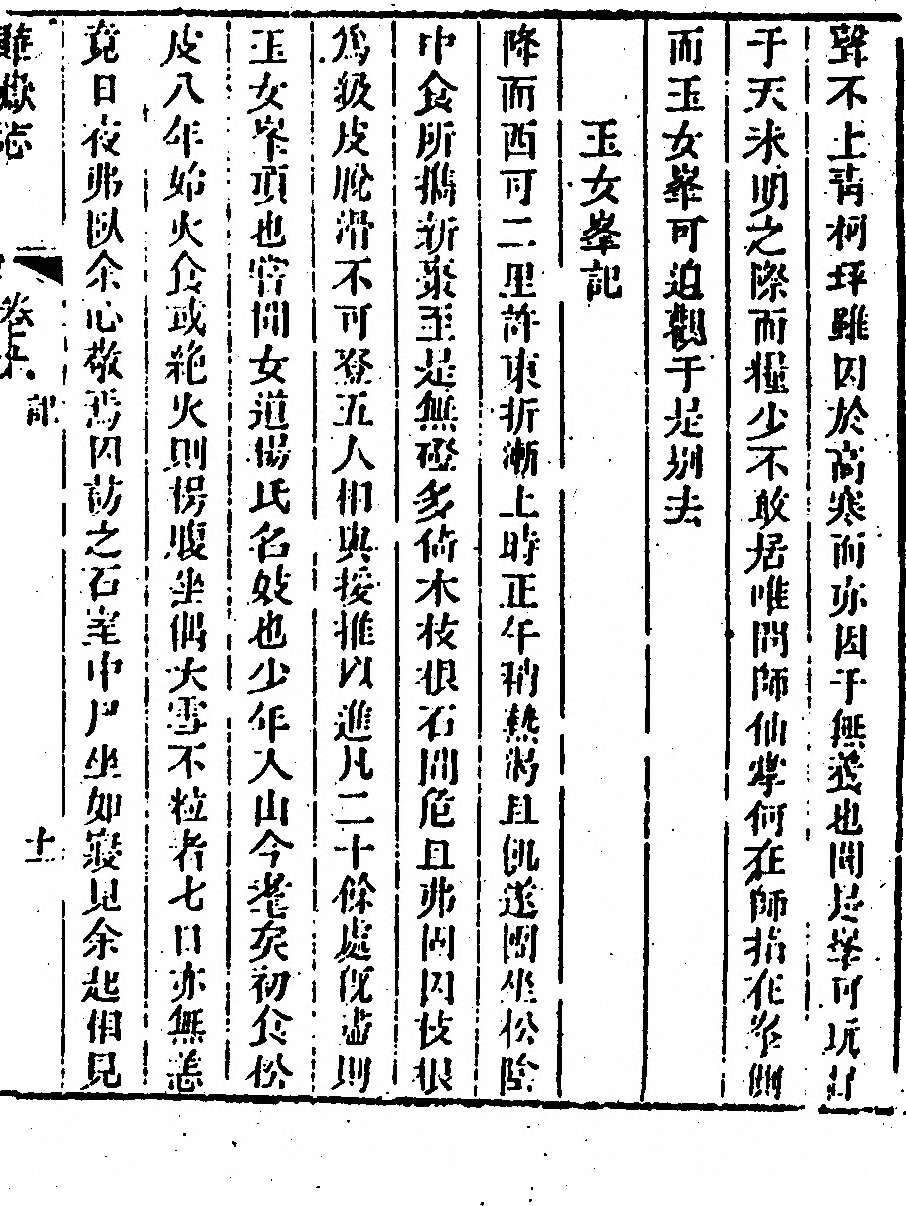 聲不上青柯坪雖因於高寒而亦因于無養也聞是峯可玩
于天未明之際而糧少不敢居唯問師仙掌何在師指在峯側
而玉女峯可迫觀于是别去
玉女峯記
降而西可二里許東折漸上時正午稍熱渴且飢遂團坐松陰
中食所擕薪聚至是無磴多倚木枝根石間危且弗固因枝根
爲級皮脫滑不可登五人相與援推以進凡二十餘處旣盡則
玉女峯頂也嘗聞女道楊氏名妙也少年入山今耄矣初食松
皮八年始火食或絶火則枵腹坐偶大雪不粒者七日亦無恙
竟日夜弗臥余心敬焉因訪之石室中尸坐如寢見余起相見
雖嶽志
卷五
記
十一